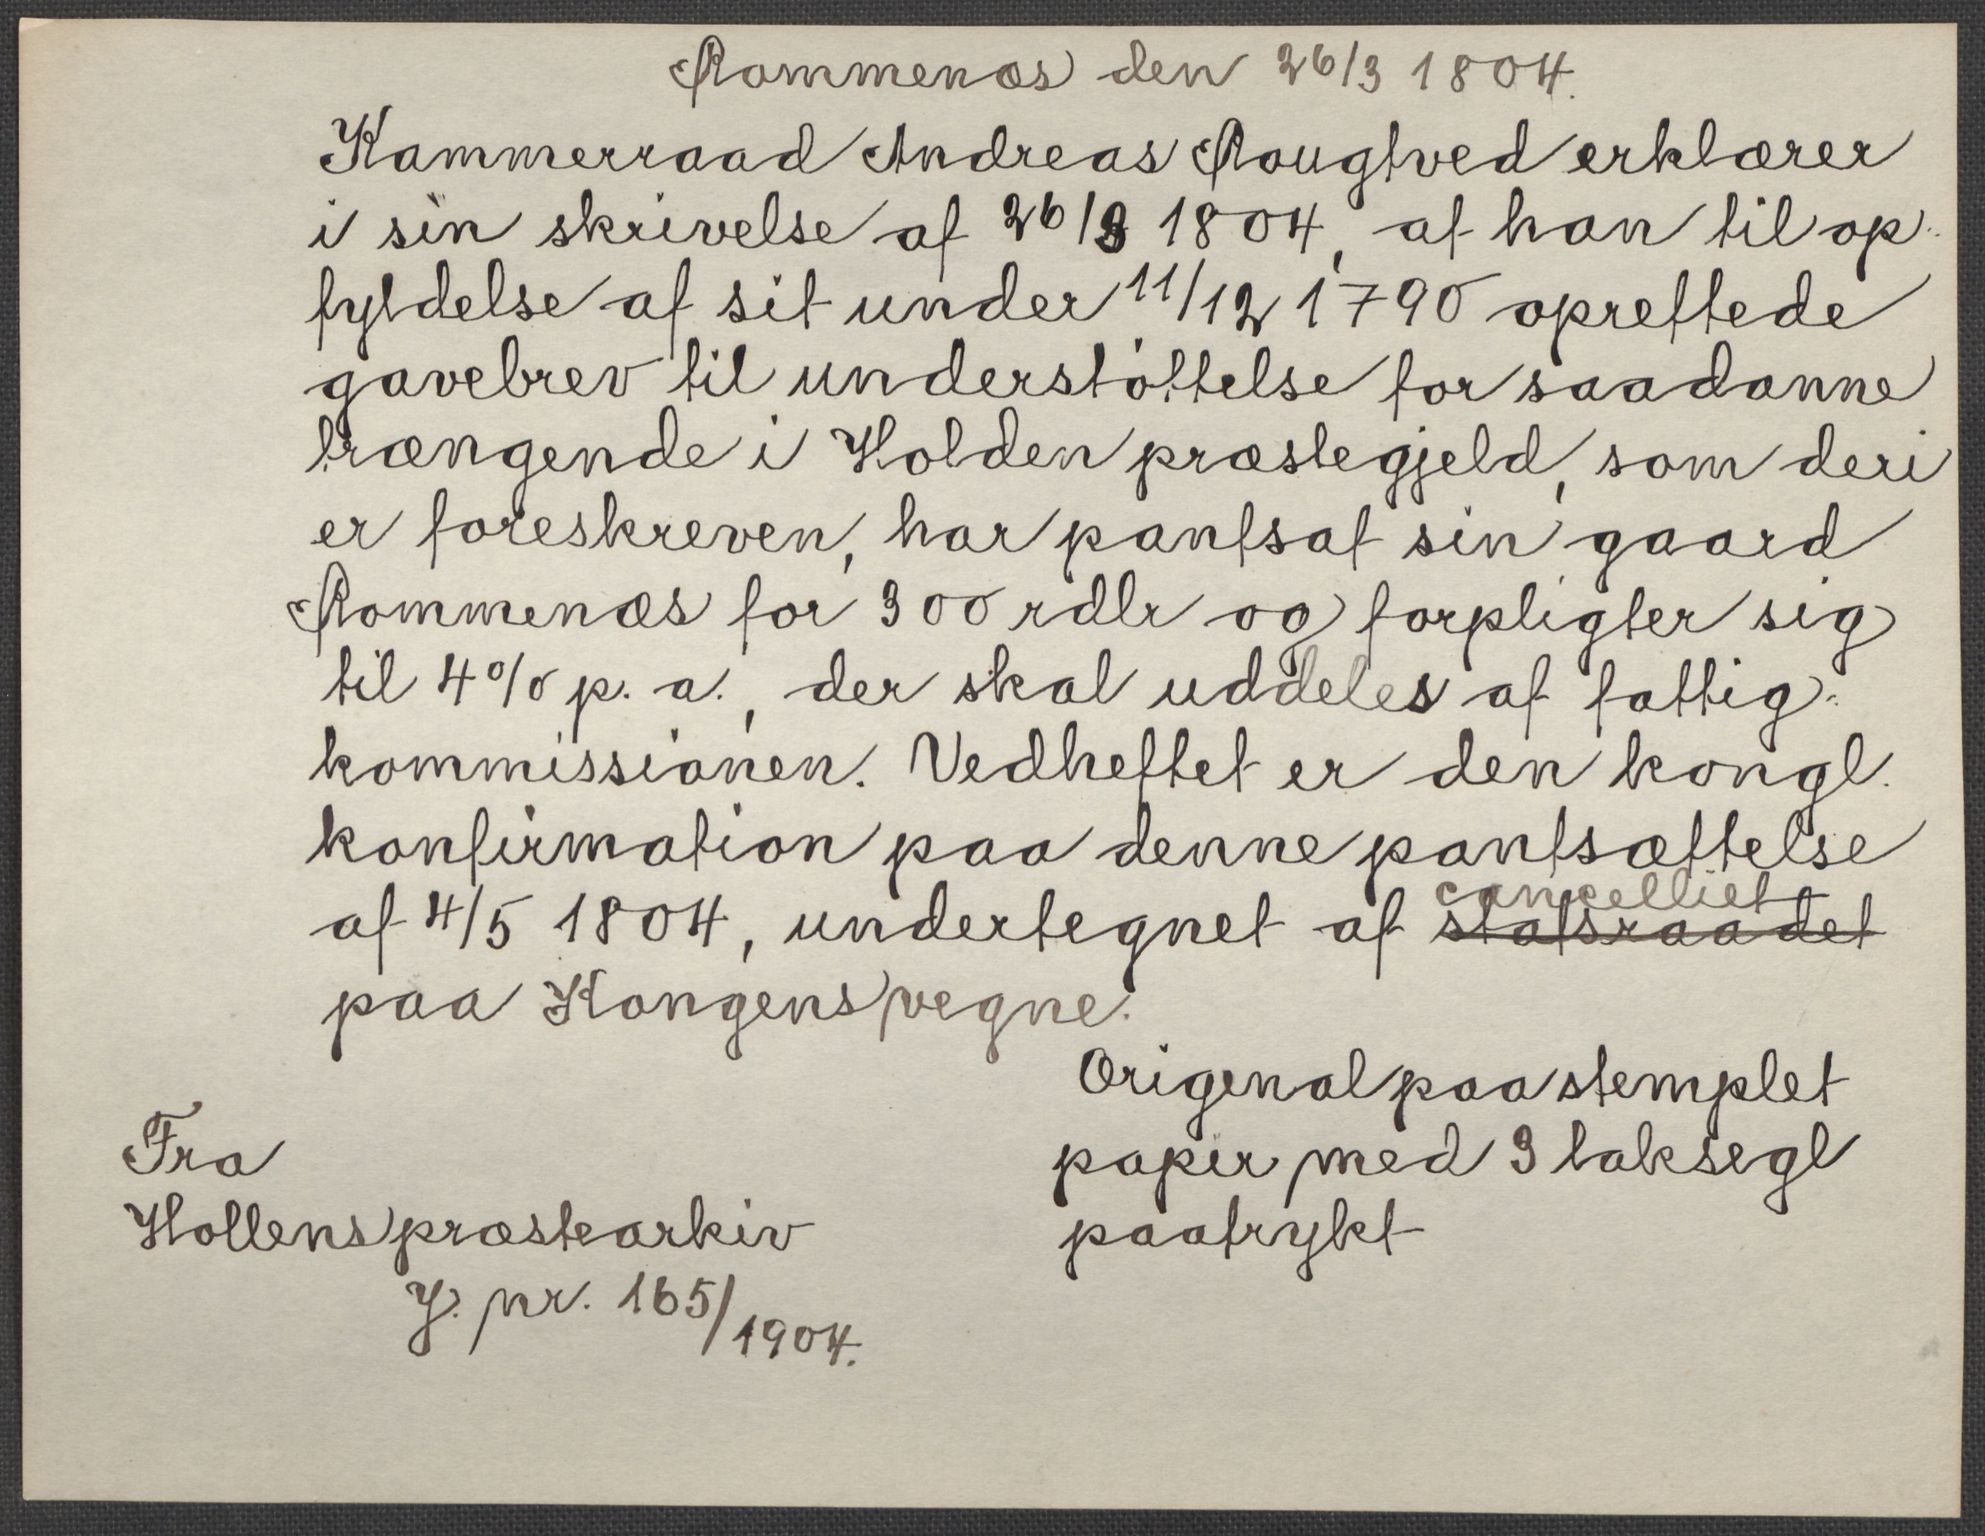 Rommenæs den 26/3 1804.
Kammerraad Andreas Rougtved erklærer
i sin skrivelse af 26/3 1804, at han til op-
fyldelse af sit under 11/12 1790 oprettede
gavebrev til understøttelse for saadanne
trængende i Holden præstegjeld, som deri
er foreskreven, har pantsat sin gaard
Rommenæs for 300 rdlr og forpligter sig
til 4% p. a., der skal uddeles af fattig-
kommissionen. Vedheftet er den kongl.
konfirmation paa denne pantsættelse
af 4/5 1804, undertegnet af statsraadet cancelliet
paa Kongens vegne.
Origenal paa stemplet
papir med 3 laksegl
paatrykt
Fra
Hollens præstearkiv
J. nr. 165/1904.